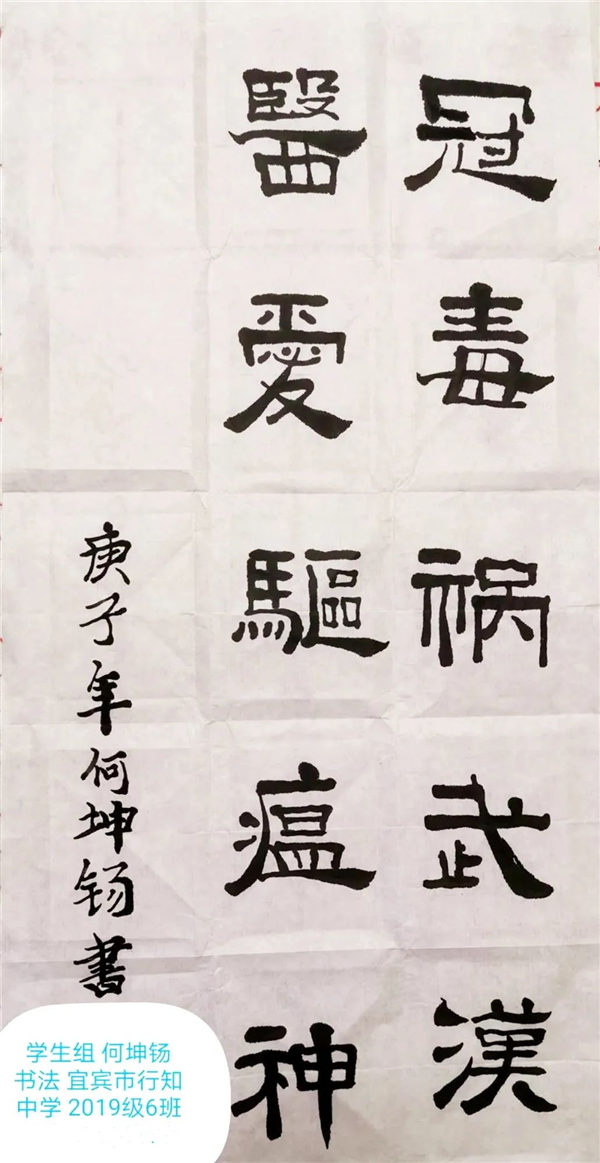 冠毒祸武漢
醫愛驅瘟神
庚子年何坤钖書
学生组 何坤钖
书法 宜宾市行知
中学 2019级6班